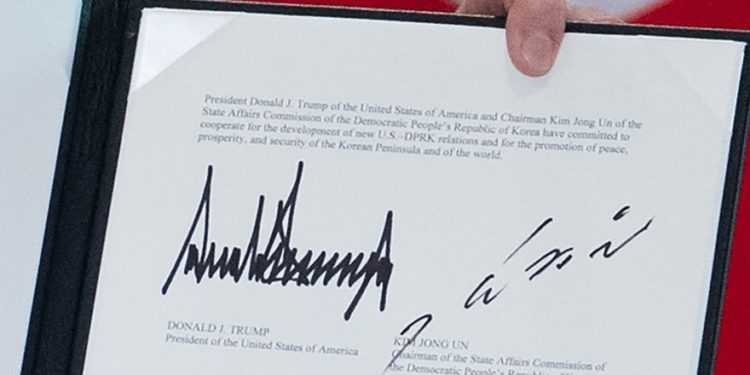 President Donald J. Trump of the United States of America and Chairman Kim Jong Un of the
State Affairs Commission of the Democratic People's Republic of Korea have committed to
cooperate for the development of new U.S.–DPRK relations and for the promotion of peace,
prosperity, and security of the Korean Peninsula and of the world.
DONALD J. TRUMP
President of the United States of America
KIM JONG UN
Chairman of the State Affairs Commission of
the Democratic People's Republic of Korea